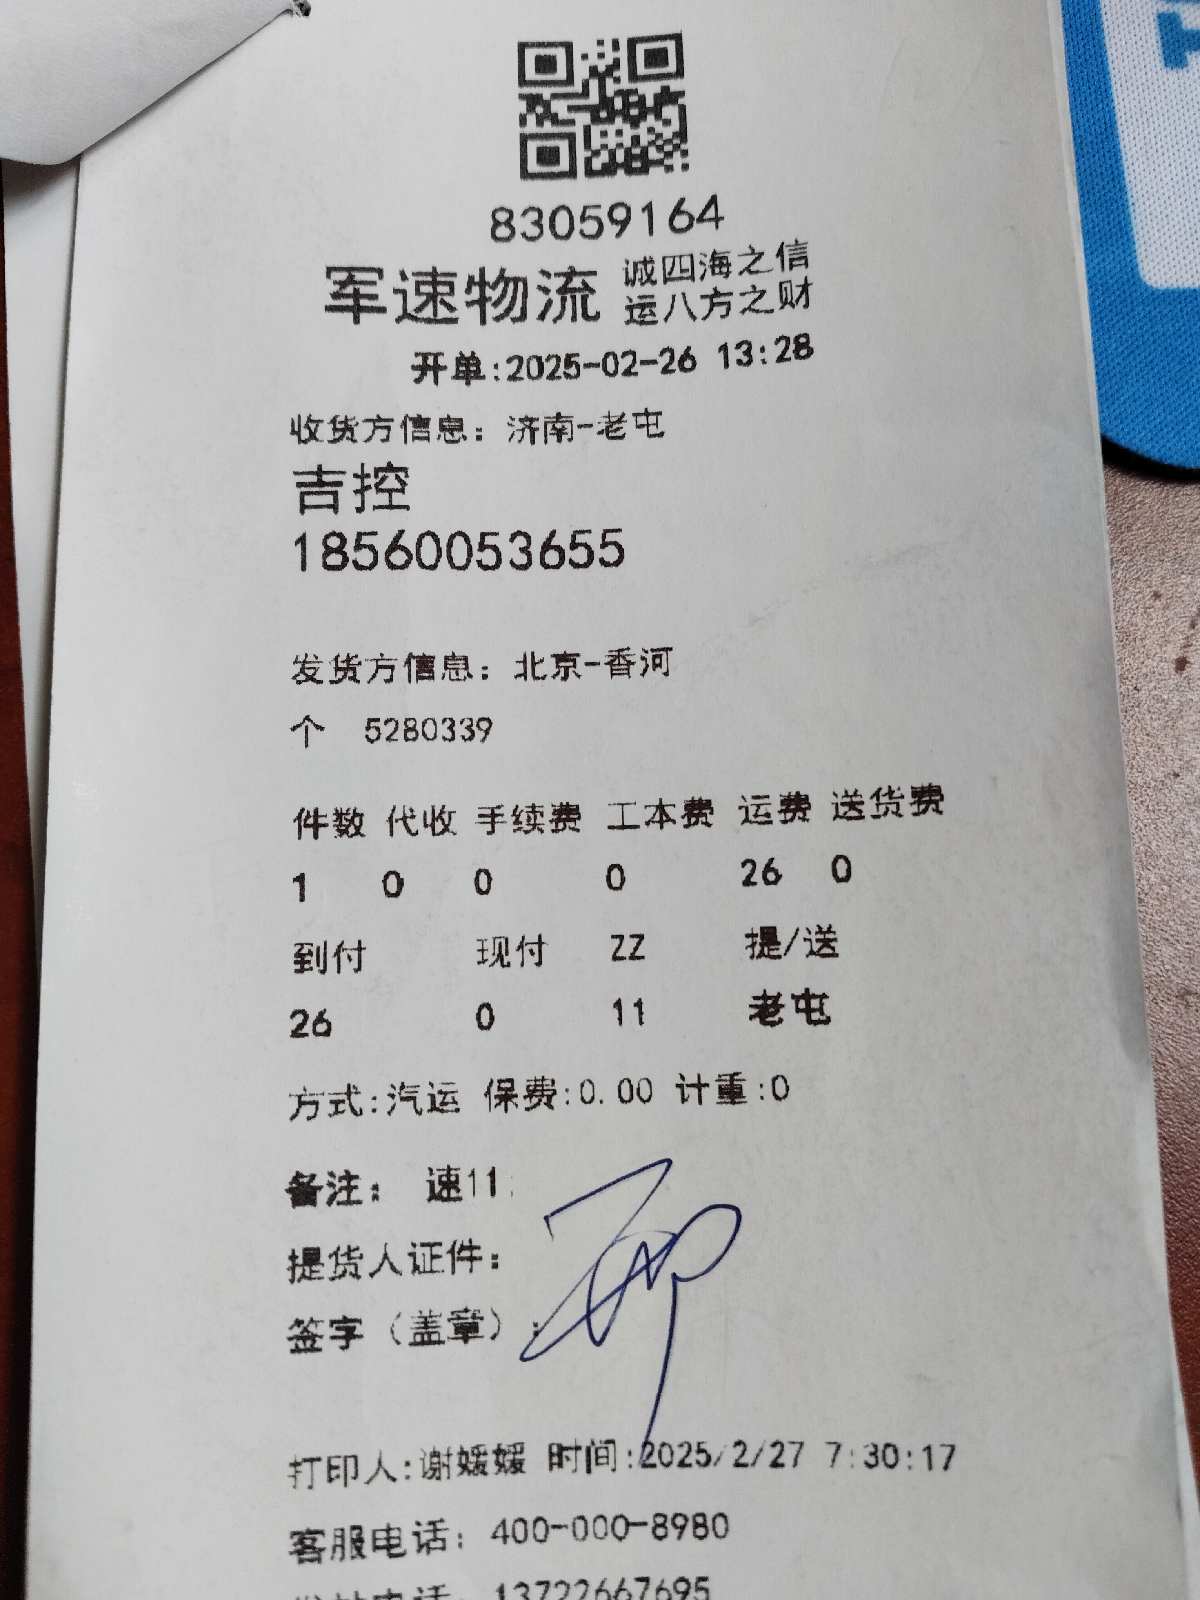 83059164
军速物流 诚四海之信
运八方之财
开单:2025-02-26 13:28
收货方信息：济南-老屯
吉控
18560053655
发货方信息：北京-香河
个 5280339
件数 代收 手续费 工本费 运费 送货费
1 0 0 0 26 0
到付 现付 ZZ 提/送
26 0 11 老屯
方式:汽运 保费:0.00 计重:0
备注： 速11
提货人证件：
签字（盖章）:
打印人:谢媛媛 时间:2025/2/27 7:30:17
客服电话：400-000-8980
13722667695